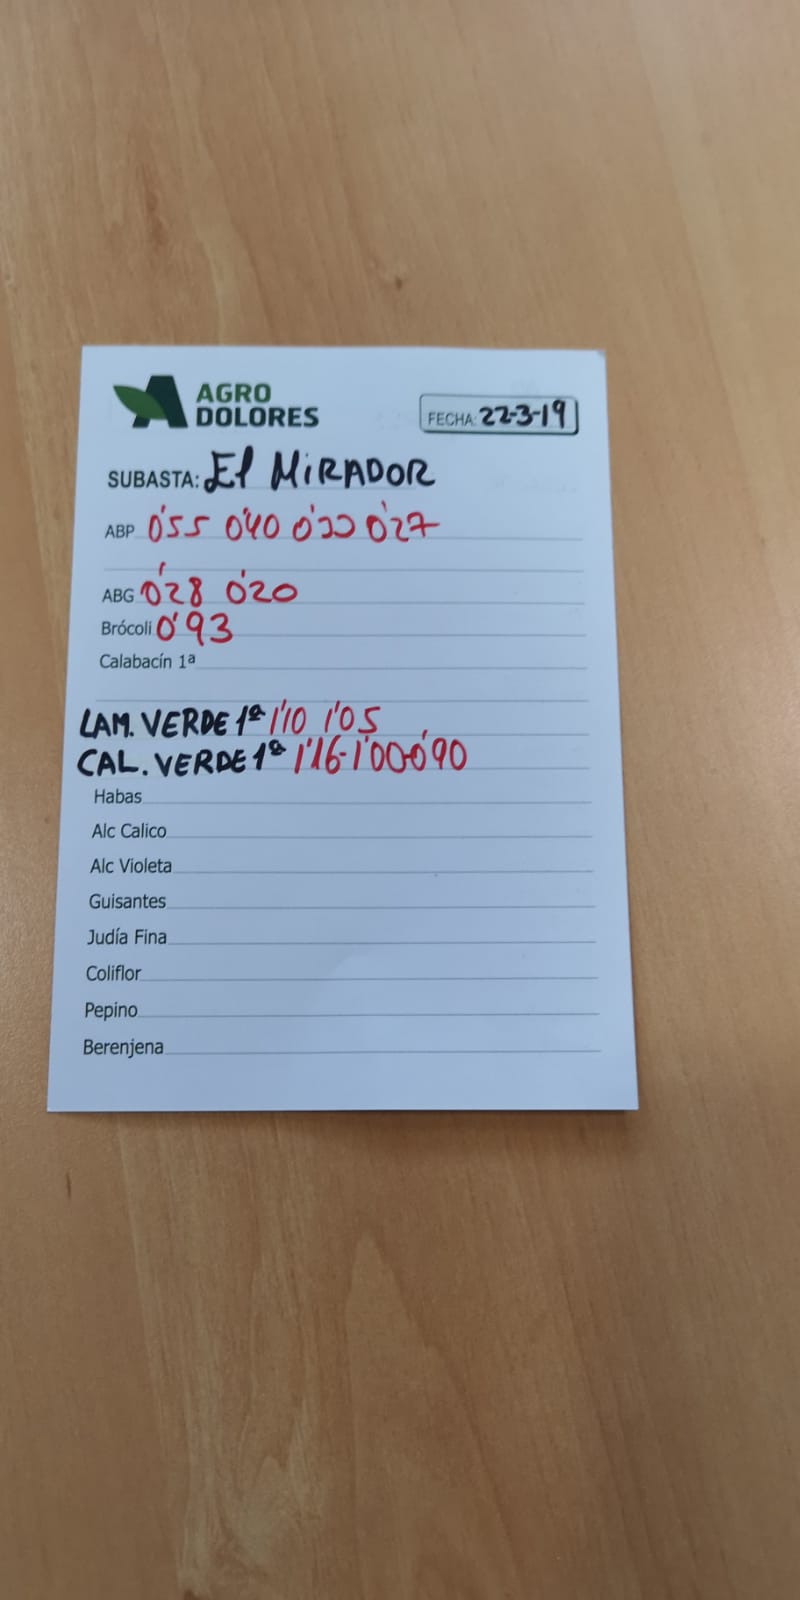 AGRO
DOLORES
FECHA: 22-3-19
SUBASTA: El MiRADOR
ABP 0'55 0'40 0'33 0'27
ABG 0'28 0'20
Brócoli 0'93
Calabacín 1ª
LAM. VERDE 1ª 1'10 1'05
CAL. VERDE 1ª 1'16-1'00-0'90
Habas
Alc Calico
Alc Violeta
Guisantes
Judía Fina
Coliflor
Pepino
Berenjena